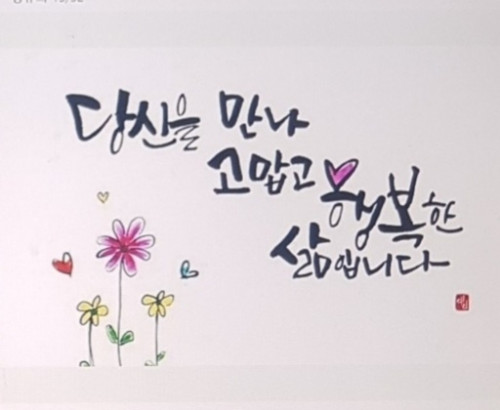 당신을 만나
고맙고 행복한
삶입니다